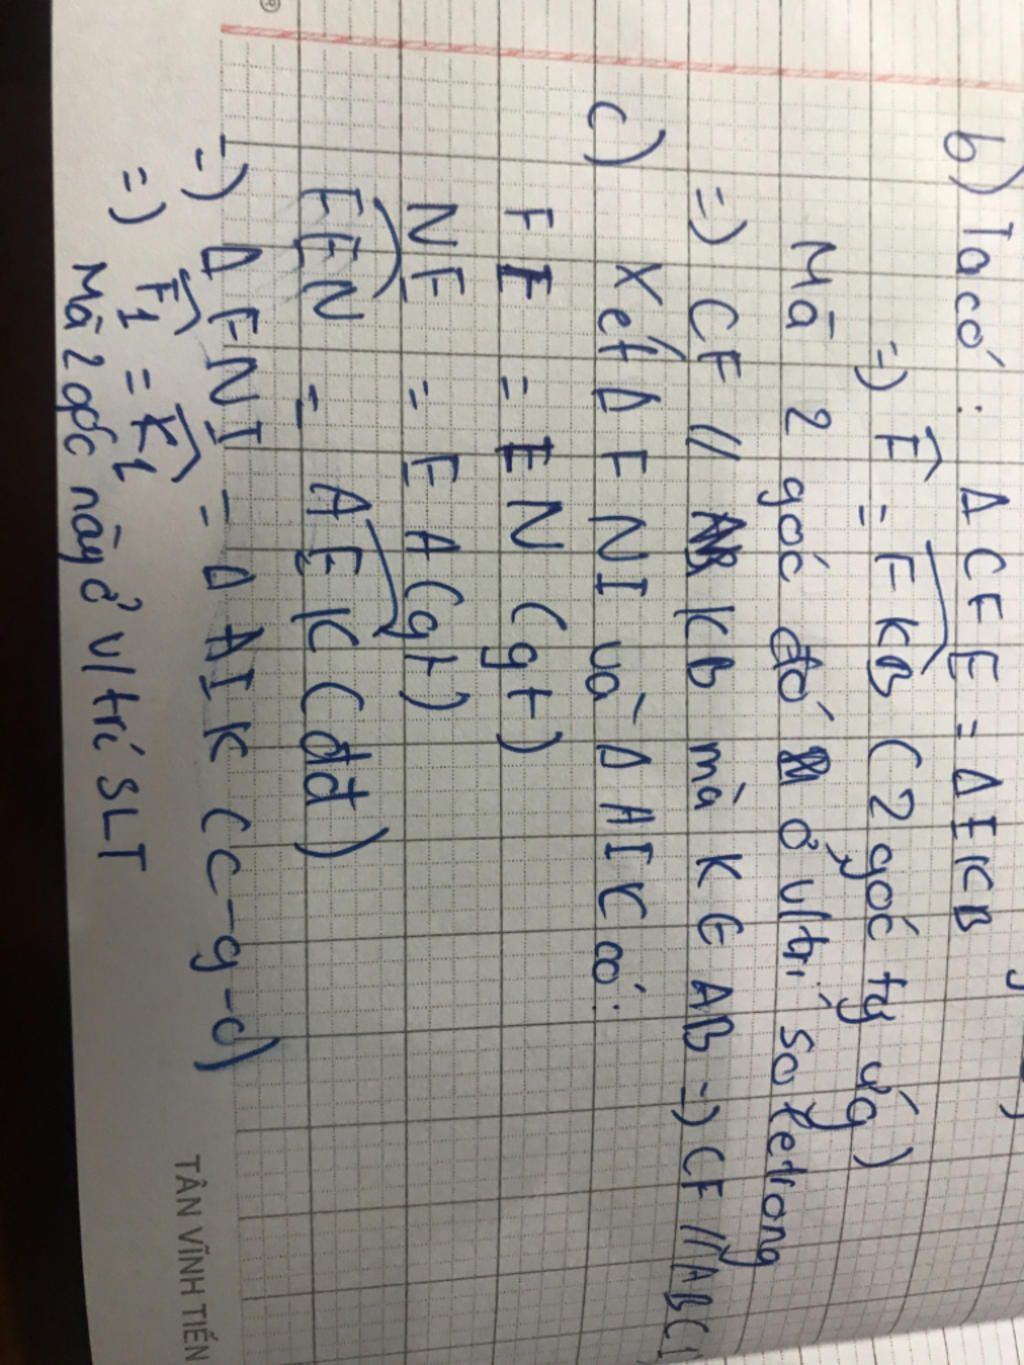 b) Ta có: Δ CFE = Δ EKB
=) F̂ = FKB (2 góc tự ứg)
Mà 2 góc đó ở vị trí so le trong
=) CF // KB mà K ∈ AB =) CF // AB (1
c) Xét Δ FNI và Δ AIK có:
FE = EN (gt)
NE = EA (gt)
FEN = AEK (đđ)
=) Δ FNI = Δ AIK (c-g-c)
=) F̂1 = K̂1
Mà 2 góc này ở vị trí SLT
TÂN VĨNH TIẾN